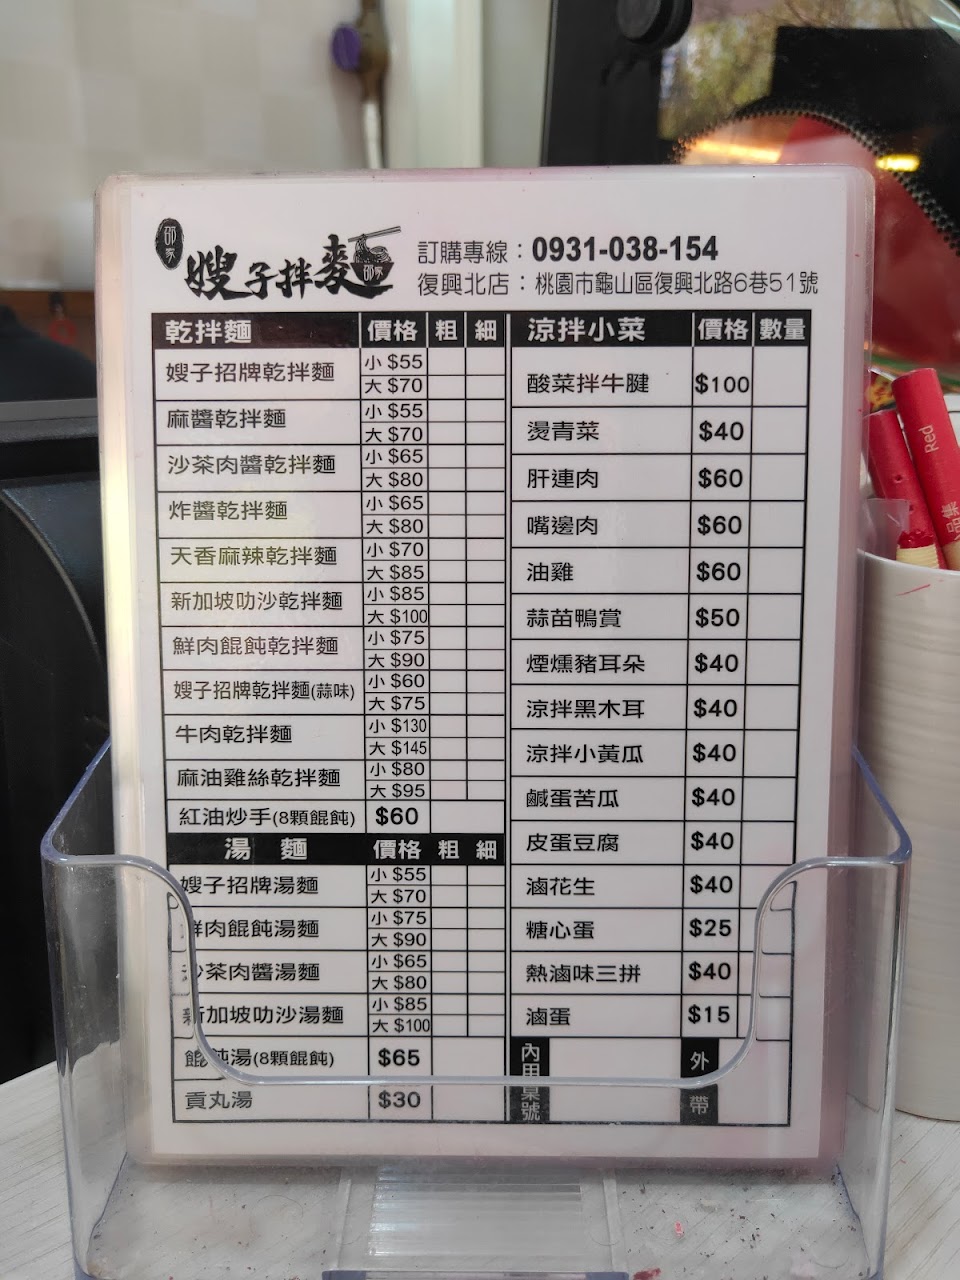 邵家
嫂子拌麵
邵家
訂購專線：0931-038-154
復興北店：桃園市龜山區復興北路6巷51號
乾拌麵 價格 粗 細
嫂子招牌乾拌麵 小 $55
大 $70
麻醬乾拌麵 小 $55
大 $70
沙茶肉醬乾拌麵 小 $65
大 $80
炸醬乾拌麵 小 $65
大 $80
天香麻辣乾拌麵 小 $70
大 $85
新加坡叻沙乾拌麵 小 $85
大 $100
鮮肉餛飩乾拌麵 小 $75
大 $90
嫂子招牌乾拌麵(蒜味) 小 $60
大 $75
牛肉乾拌麵 小 $130
大 $145
麻油雞絲乾拌麵 小 $80
大 $95
紅油炒手(8顆餛飩) $60
湯 麵 價格 粗 細
嫂子招牌湯麵 小 $55
大 $70
鮮肉餛飩湯麵 小 $75
大 $90
沙茶肉醬湯麵 小 $65
大 $80
新加坡叻沙湯麵 小 $85
大 $100
餛飩湯(8顆餛飩) $65
貢丸湯 $30
涼拌小菜 價格 數量
酸菜拌牛腱 $100
燙青菜 $40
肝連肉 $60
嘴邊肉 $60
油雞 $60
蒜苗鴨賞 $50
煙燻豬耳朵 $40
涼拌黑木耳 $40
涼拌小黃瓜 $40
鹹蛋苦瓜 $40
皮蛋豆腐 $40
滷花生 $40
糖心蛋 $25
熱滷味三拼 $40
滷蛋 $15
內用桌號 外帶
Red